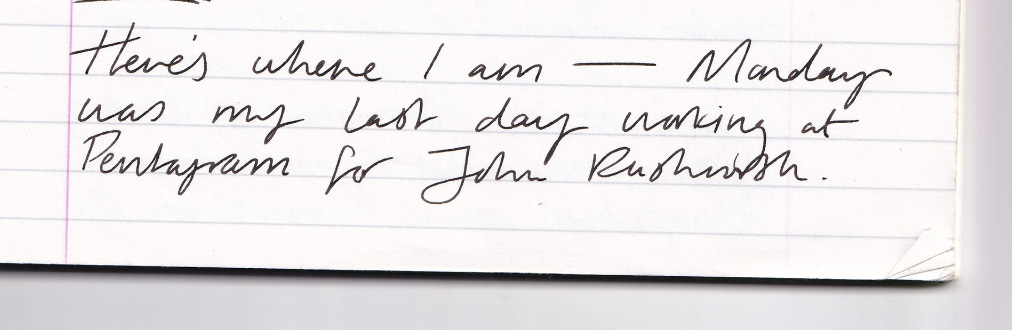 Here's where I am — Monday
was my last day working at
Pentagram for John Rushworth.